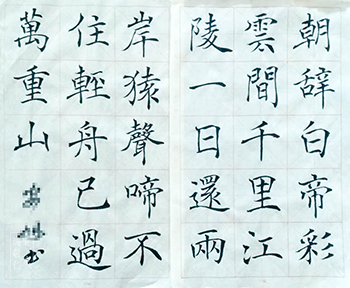 朝辭白帝彩
雲間千里江
陵一日還兩
岸猿聲啼不
住輕舟已過
萬重山
书